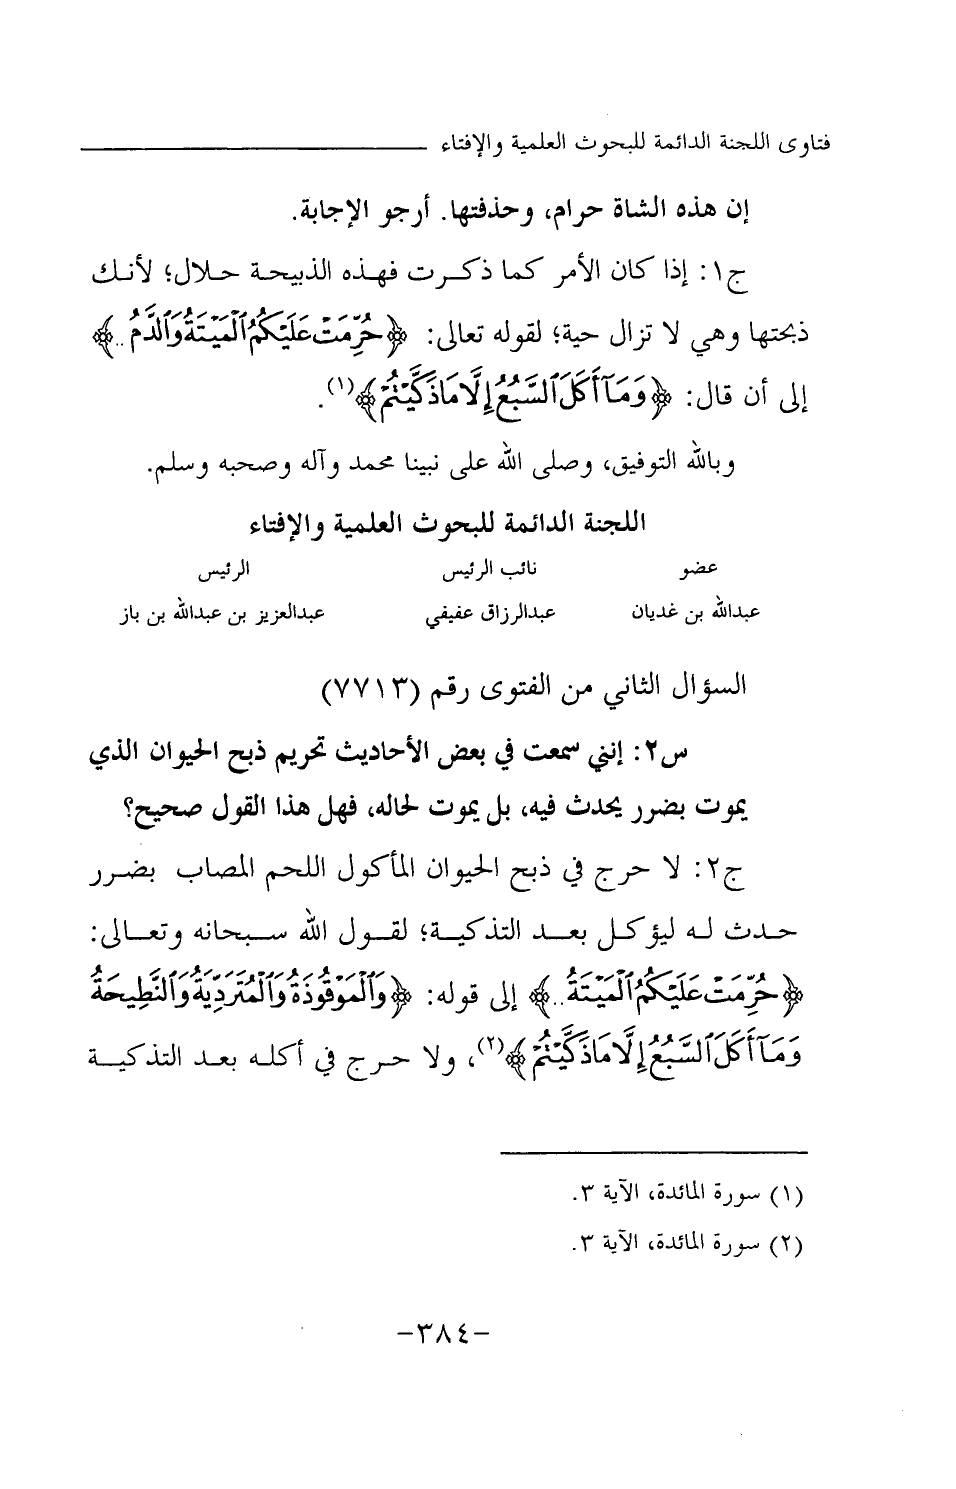 فتاوى اللجنة الدائمة للبحوث العلمية والإفتاء
إن هذه الشاة حرام، وحذفتها. أرجو الإجابة.
ج١: إذا كان الأمر كما ذكرت فهذه الذبيحة حلال؛ لأنك
ذبحتها وهي لا تزال حية؛ لقوله تعالى: ﴿حُرِّمَتْ عَلَيْكُمُ ٱلْمَيْتَةُ وَٱلدَّمُ ..﴾
إلى أن قال: ﴿وَمَآ أَكَلَ ٱلسَّبُعُ إِلَّا مَا ذَكَّيْتُمْ﴾(١).
وبالله التوفيق، وصلى الله على نبينا محمد وآله وصحبه وسلم.
اللجنة الدائمة للبحوث العلمية والإفتاء
عضو نائب الرئيس الرئيس
عبدالله بن غديان عبدالرزاق عفيفي عبدالعزيز بن عبدالله بن باز
السؤال الثاني من الفتوى رقم (٧٧١٣)
س٢: إنني سمعت في بعض الأحاديث تحريم ذبح الحيوان الذي
يموت بضرر يحدث فيه، بل يموت لحاله، فهل هذا القول صحيح؟
ج٢: لا حرج في ذبح الحيوان المأكول اللحم المصاب بضرر
حدث له ليؤكل بعد التذكية؛ لقول الله سبحانه وتعالى:
﴿حُرِّمَتْ عَلَيْكُمُ ٱلْمَيْتَةُ ..﴾ إلى قوله: ﴿وَٱلْمَوْقُوذَةُ وَٱلْمُتَرَدِّيَةُ وَٱلنَّطِيحَةُ
وَمَآ أَكَلَ ٱلسَّبُعُ إِلَّا مَا ذَكَّيْتُمْ﴾(٢)، ولا حرج في أكله بعد التذكية
(١) سورة المائدة، الآية ٣.
(٢) سورة المائدة، الآية ٣.
-٣٨٤-